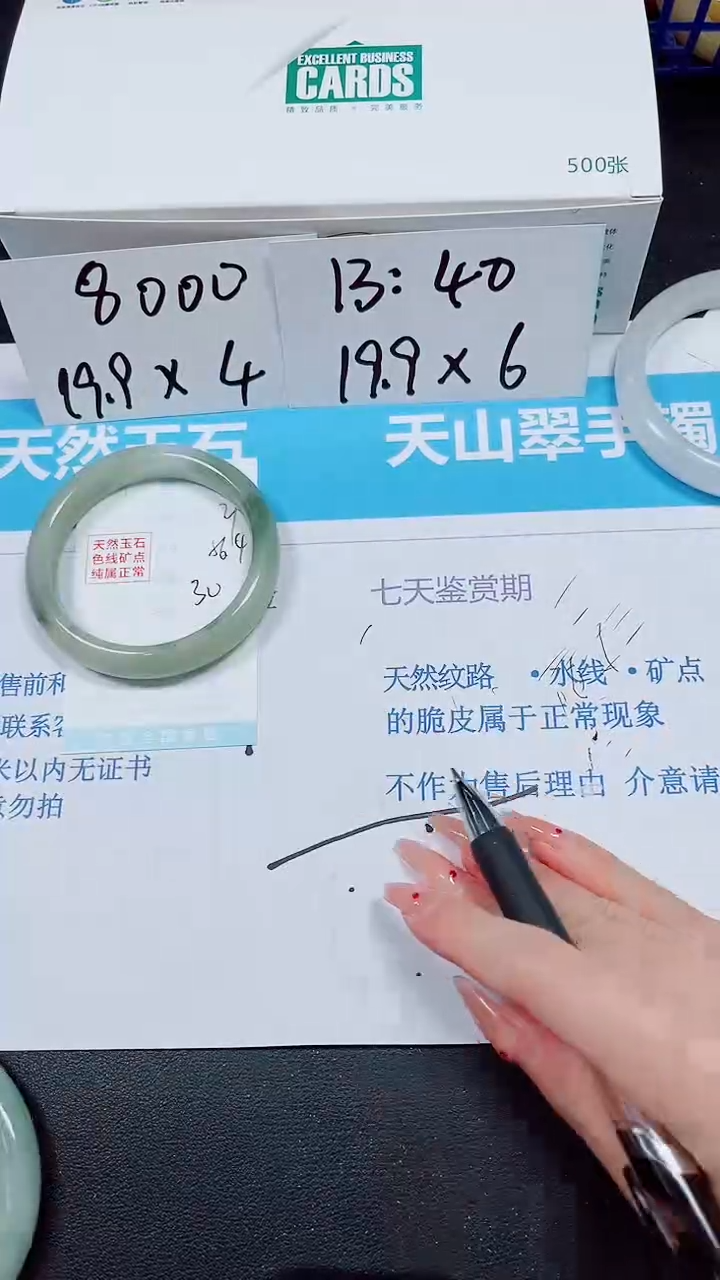 EXCELLENT BUSINESS
CARDS
精致品质 · 完美服务
500张
8000
19.9 x 4
13:40
19.9 x 6
天然玉石
天山翠手镯
天然玉石
色线矿点
纯属正常
30
七天鉴赏期
天然纹路 ·水线 ·矿点
的脆皮属于正常现象
不作为售后理由 介意请
售前和
联系客
米以内无证书
意勿拍